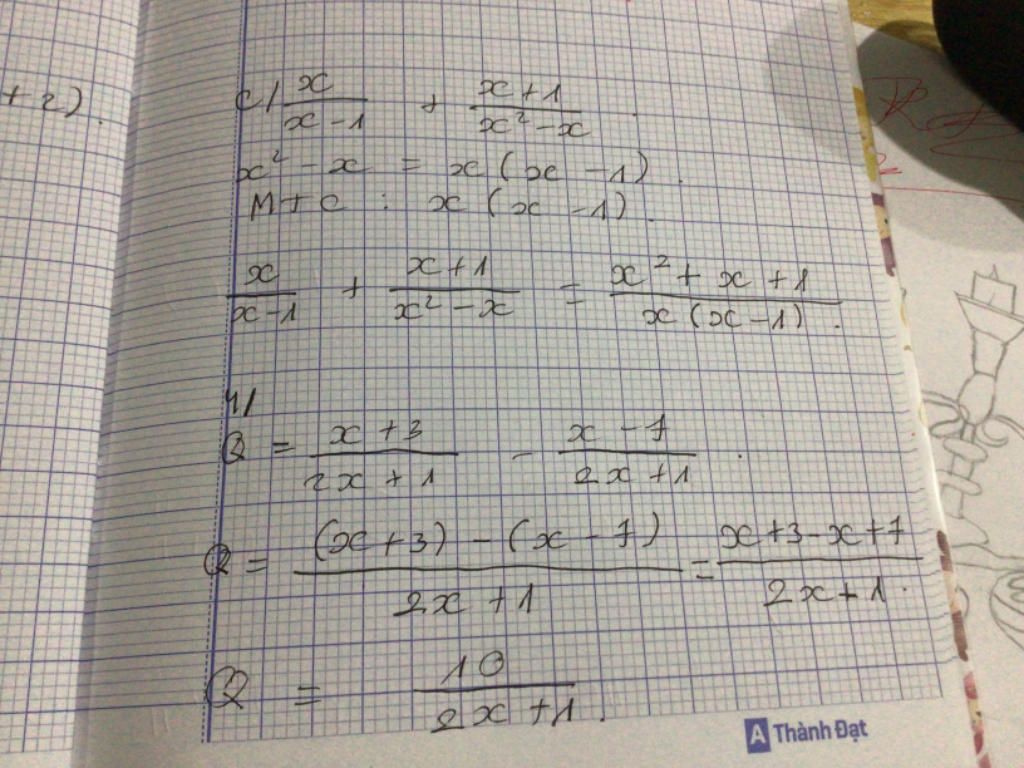 + 2)
c/ x/(x-1) + (x+1)/(x²-x)
x² - x = x(x - 1).
MTC : x(x - 1).
x/(x-1) + (x+1)/(x²-x) = (x²+x+1)/(x(x-1)).
4/
Q = (x+3)/(2x+1) - (x-7)/(2x+1).
Q = ((x+3)-(x-7))/(2x+1) = (x+3-x+7)/(2x+1).
Q = 10/(2x+1).
A Thành Đạt